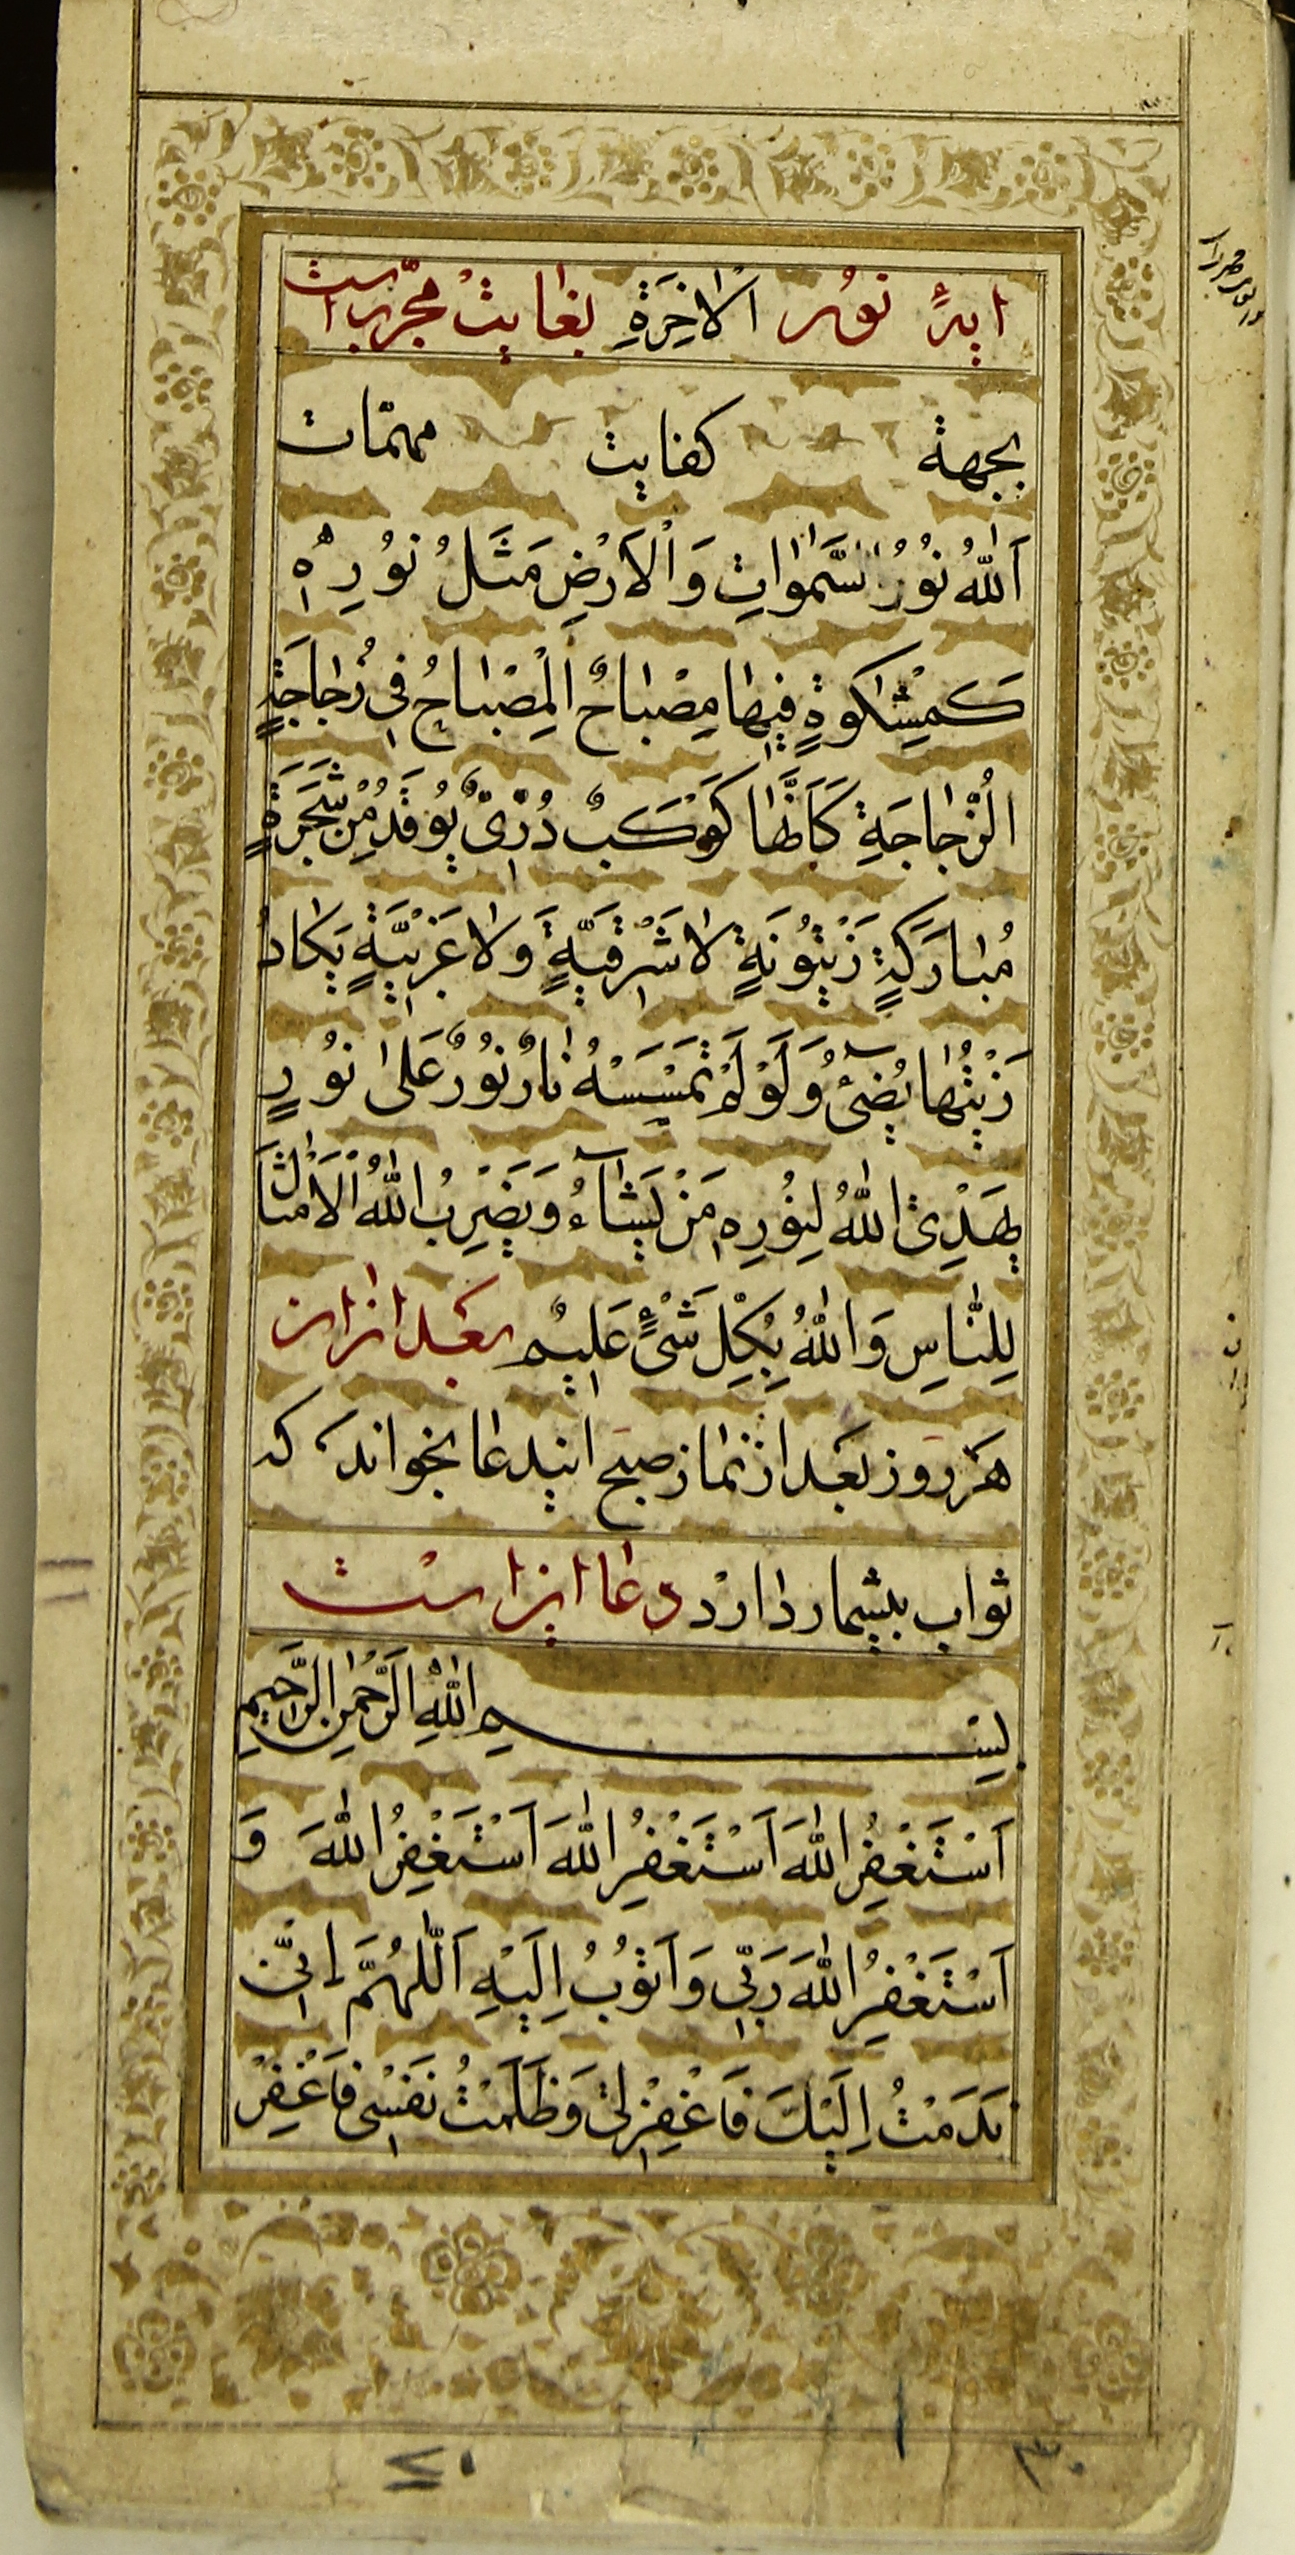 ایهٔ نور الاخِرَةِ بغایت مجرّب است
بجهة کفایت مهمّات
اَللّٰهُ نُوُرُ السَّمٰواتِ وَالْاَرْضِ مَثَلُ نُوُرِهٖ
كَمِشْكٰوةٍ فيٖهٰا مِصْبٰاحٌ اَلْمِصْبٰاحُ فىٖ زُجٰاجَةٍ
الزُّجٰاجَةِ كَاَنَّهٰا كَوْكَبٌ دُرِّىٌّ يُوُقَدُ مِنْ شَجَرَةٍ
مُبٰارَكَةٍ زَيْتُوُنَةٍ لاٰ شَرْقِيَّةٍ وَلاٰ غَرْبِيَّةٍ يَكٰادُ
زَيْتُهٰا يُضىٖٓئُ وَلَوْ لَمْ تَمْسَسْهُ نٰارٌ نُوُرٌ عَلىٰ نُوُرٍ
يَهْدِى اللّٰهُ لِنُوُرِهٖ مَنْ يَشٰآءُ وَيَضْرِبُ اللّٰهُ الْاَمْثٰالَ
لِلنّٰاسِ وَاللّٰهُ بِكُلِّ شَىْءٍ عَليٖمٌ بعد از این
هر روز بعد از نماز صبح ایندعا بخواند که
ثواب بیشمار دارد دعا این است
بِسْمِ اللّٰهِ الرَّحْمٰنِ الرَّحيٖمِ
اَسْتَغْفِرُ اللّٰهَ اَسْتَغْفِرُ اللّٰهَ اَسْتَغْفِرُ اللّٰهَ وَ
اَسْتَغْفِرُ اللّٰهَ رَبّىٖ وَاَتُوُبُ اِلَيْهِ اَللّٰهُمَّ اِنّىٖ
نَدَمْتُ اِلَيْكَ فَاغْفِرْ لىٖ وَظَلَمْتُ نَفْسىٖ فَاغْفِرْ